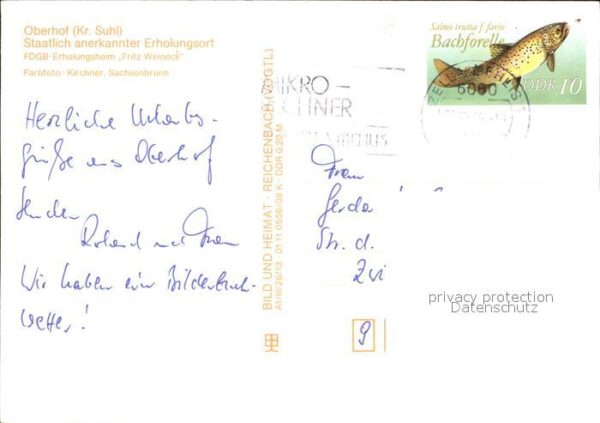 Oberhof (Kr. Suhl)
Staatlich anerkannter Erholungsort
FDGB-Erholungsheim „Fritz Weineck"
Farbfoto: Kirchner, Sachsenbrunn
Herzliche Urlaubs-
grüße aus Oberhof
senden
Roland und Frau
Wir haben ein Bilderbuch-
wetter!
BILD UND HEIMAT · REICHENBACH (VOGTL)
A1/III/26/13 01 11 0556/08 K DDR 0,20 M
Salmo trutta f. fario
Bachforelle
DDR 10
6060
Frau
Gerda
Str. d.
Zwi
9
privacy protection
Datenschutz